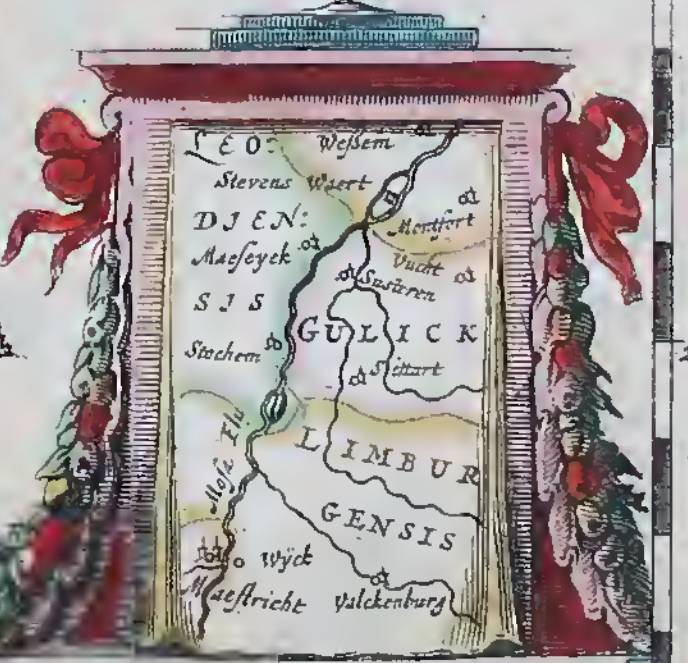 LEO:
Weſsem
Stevens Waert
DIEN:
Montfort
Maeseyck
Vucht
Susteren
SIS
GULICK
Stochem
Sittart
Mosa Flu
LIMBUR
GENSIS
Wÿck
Maestricht
Valckenburg